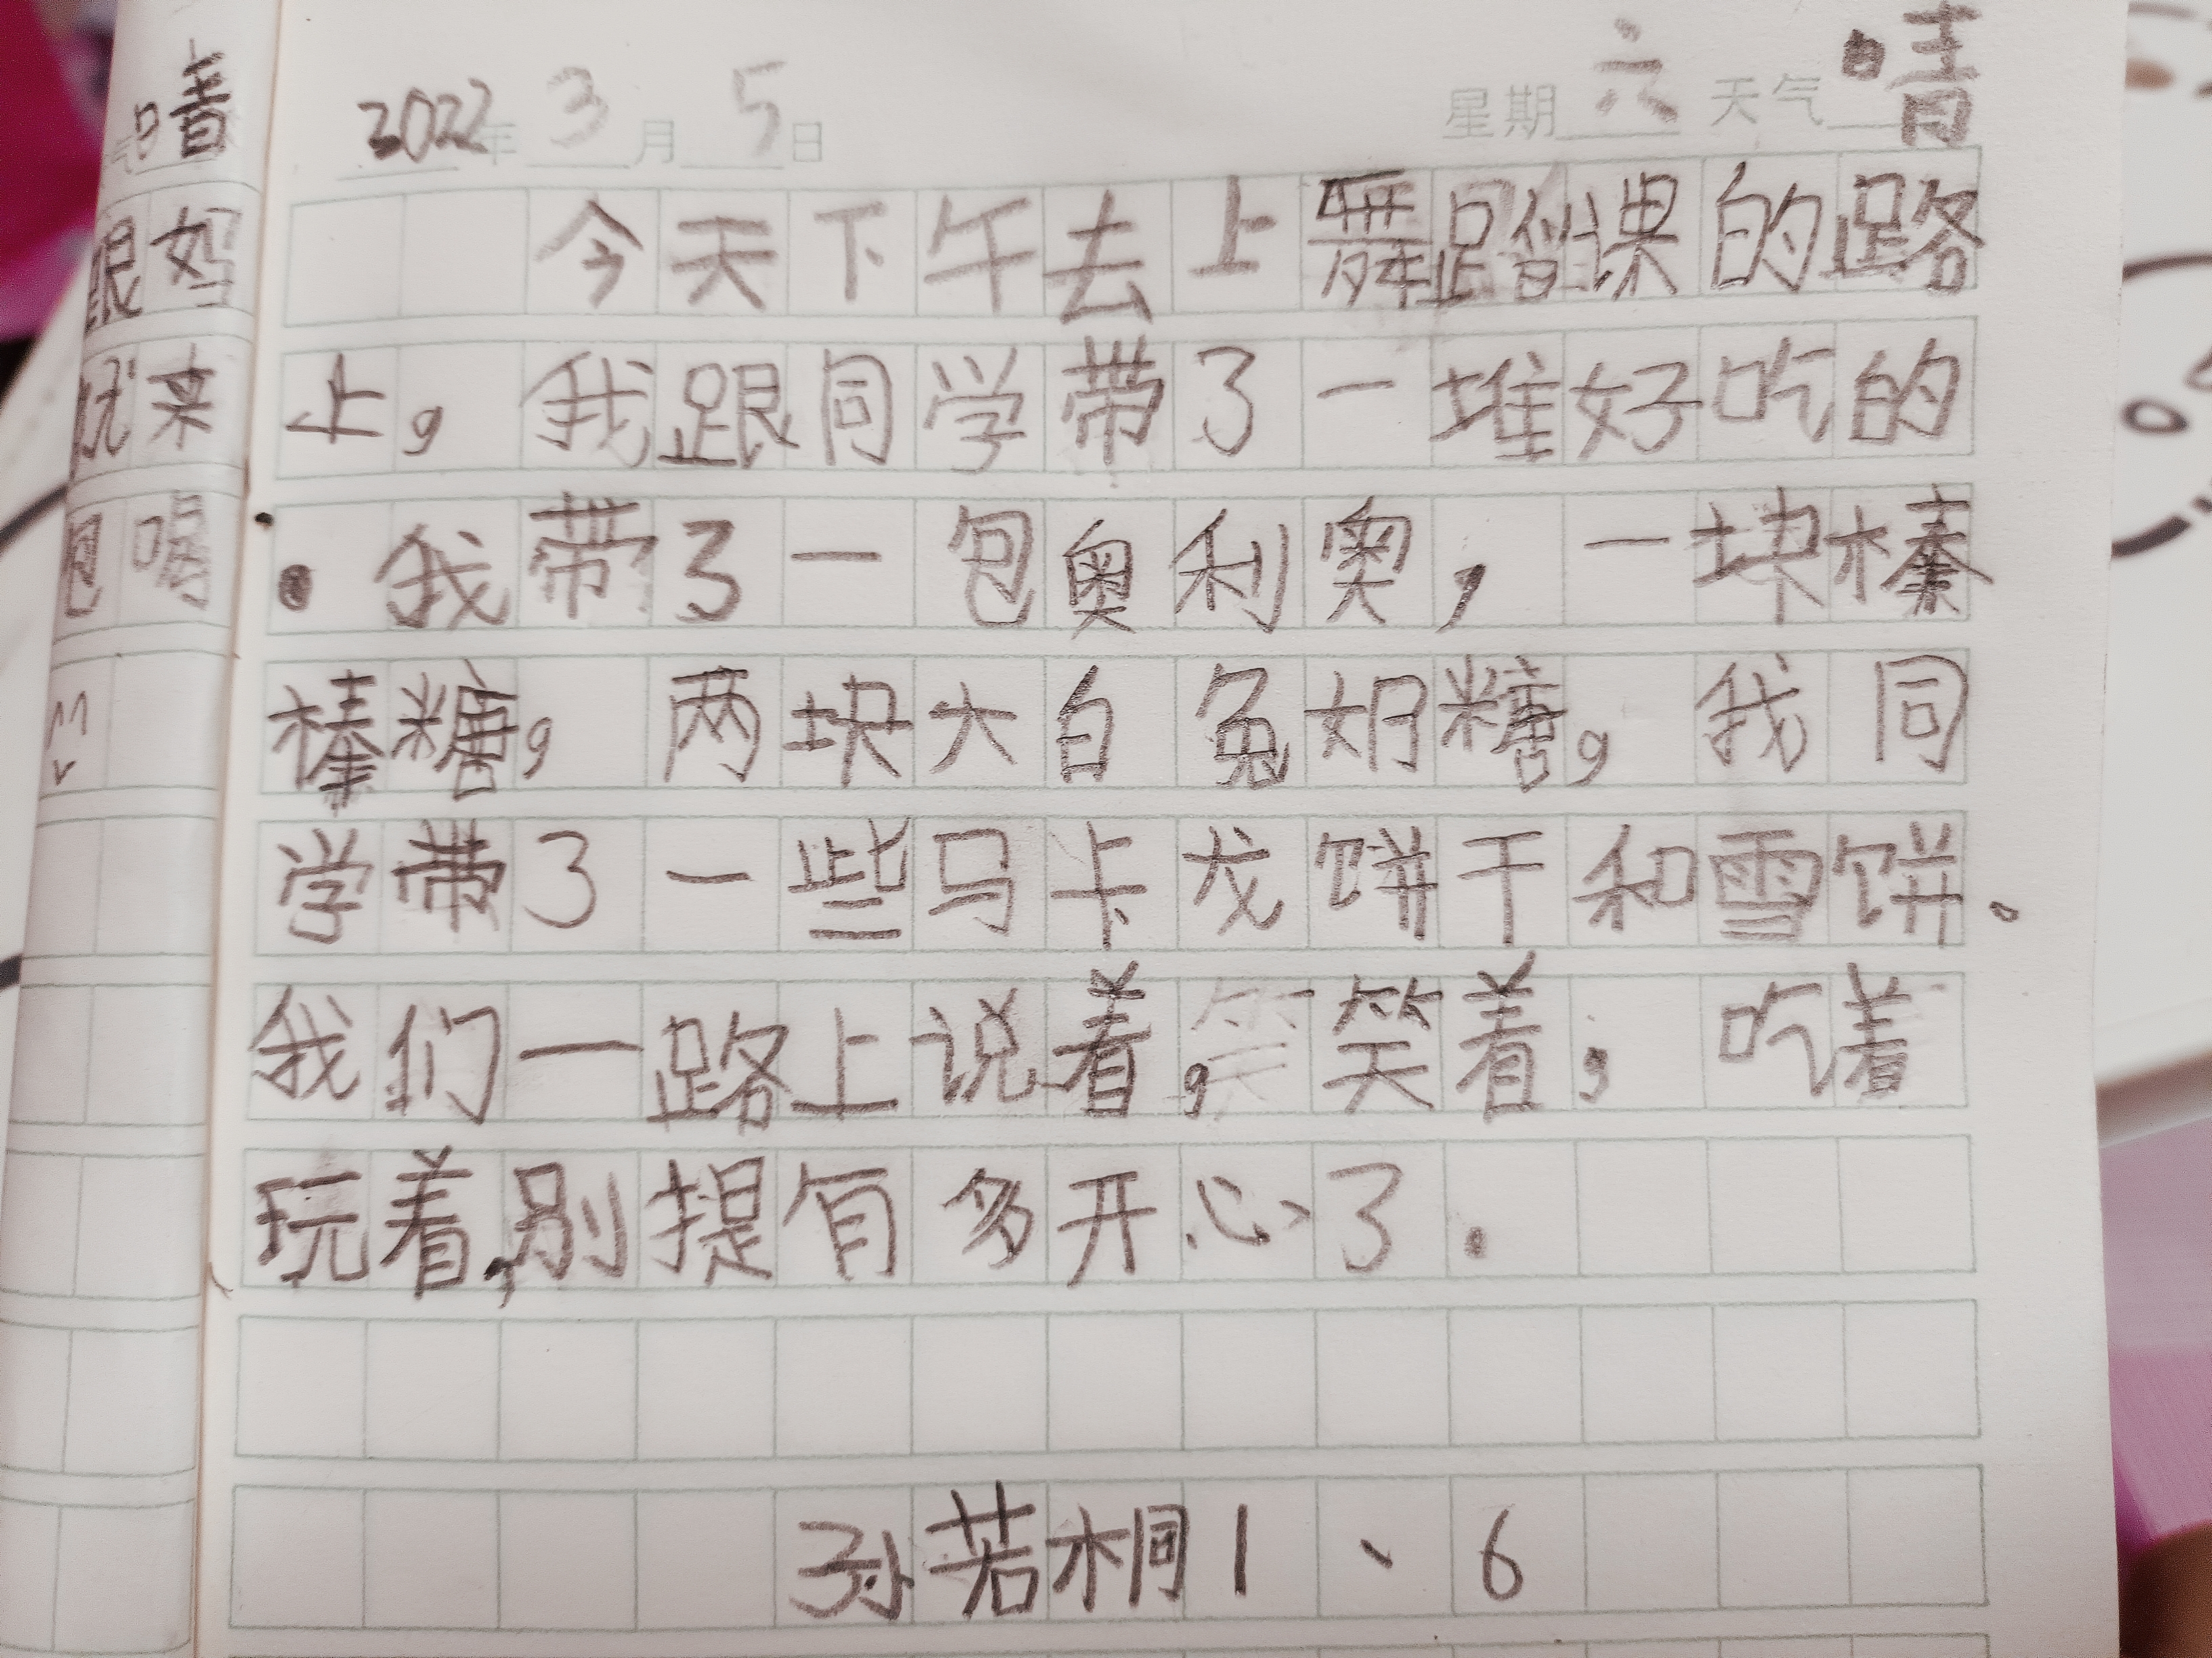 2022年3月5日 星期六 天气晴
今天下午去上舞蹈课的路
上，我跟同学带了一堆好吃的
。我带了一包奥利奥，一块棒
棒糖，两块大白兔奶糖，我同
学带了一些马卡龙饼干和雪饼.
我们一路上说着，笑着，吃着
玩着，别提有多开心了.
孙若桐1、6
晴
跟妈
来